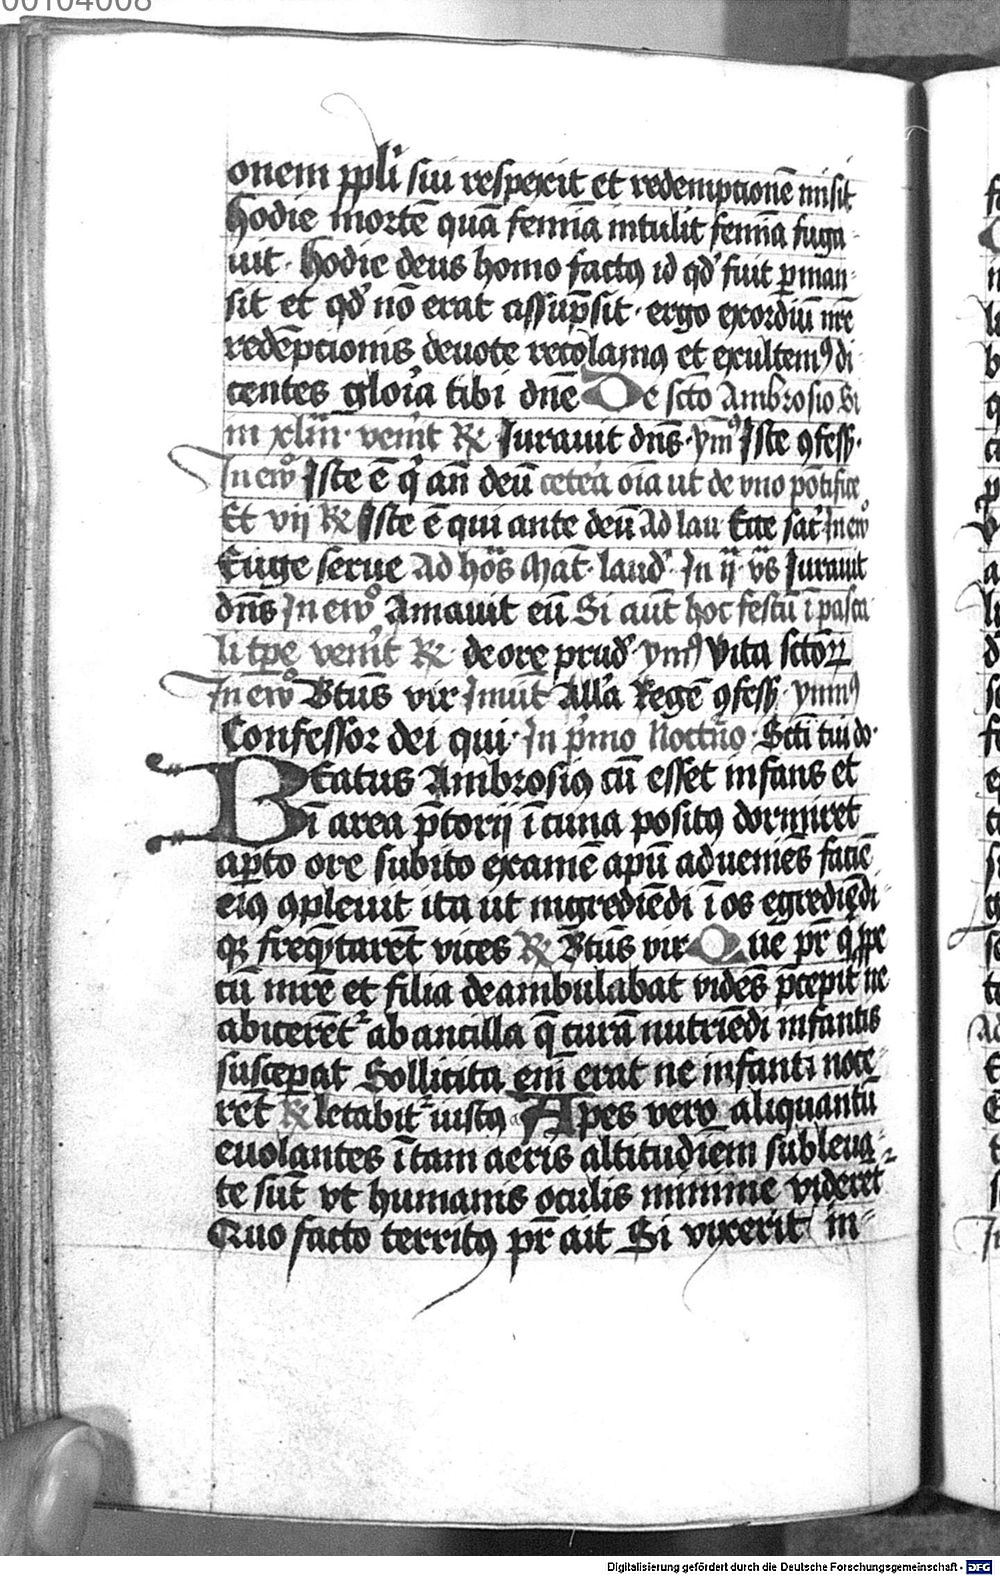 00104008
onem ppli sui respexit et redemptionē misit
hodie mortē quā femīa intulit femīa fuga
uit · hodie deus homo factꝯ id qd' fuit ꝑman
sit et qd' nō erat assūpsit · ergo exordiū nr̄e
redēpcionis deuote recolamꝯ et exultemꝯ di
centes glor'a tibi dn̄e De sc̄to Ambrosio Si
in xlm̄ · venīt ℟ Iurauit dn̄s · ymꝯ Iste ꝯfess ·
In ew̄o Iste ē q' an̄ deū cetera oīa ut de vno pōtifice
Et vij ℟ Iste ē qui ante deū Ad lau Ecce sac' In ew̄o
Euge serue Ad ho'as Mat̄ · laud' · In ij · vs̄ Iurauit
dn̄s In ew̄o Amauit eū Si aūt hoc festū ī pasca
li tp̄e venīt ℟ · de ore prud' ymꝯ Vita sctōꝝ
In ew̄o Bt̄us vir Inuit̄ Alla Regē ꝯfess · ymnꝯ
Confessor dei qui · In p'mo Noctur̄no · Sc̄ti tui do ·
Beatus Ambrosiꝯ cū esset infans et
ī area p̄torij ī cuna positꝯ dormiret
aꝑto ore subito examē apū adueniēs faciē
eiꝯ ꝯpleuit ita ut ingrediēdi ī os egrediēdi
qꝫ freqn̄tarēt vices ℟ Bt̄us vir Que pr̄ q' ꝓpe
cū mr̄e et filia deambulabat vidēs p̄cepit ne
abicerēt' ab ancilla q̄ curā nutriēdi infantis
susceꝑat Sollicita em̄ erat ne infanti noce
rēt ℟ letabit' iustꝯ Apes vero aliquantū
euolantes ī tam aeris altitudīem subleua
te sūt vt humanis oculis minime viderēt'
Quo facto territꝯ pr̄ ait Si vixerit in
Digitalisierung gefördert durch die Deutsche Forschungsgemeinschaft - DFG